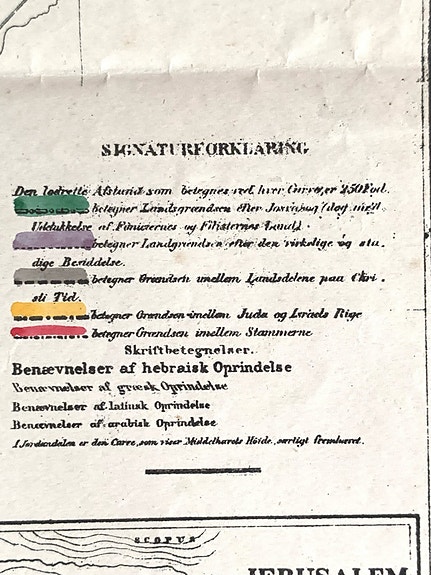 SIGNATURFORKLARING
Den lodrette Afstand som betegnes ved hver Curve, er 250 Fod.
betegner Landsgrændsen efter Josvabog (dog med
Udelukkelse af Fønisernes og Filisternes Land).
betegner Landgrændsen efter den virkelige og sta-
dige Besiddelse.
betegner Grændsen imellem Landsdelene paa Chri-
sti Tid.
betegner Grændsen imellem Juda og Israels Rige
betegner Grændsen imellem Stammerne
Skriftbetegnelser.
Benævnelser af hebraisk Oprindelse
Benævnelser af græsk Oprindelse
Benævnelser af latinsk Oprindelse
Benævnelser af arabisk Oprindelse
I Jordandalen er den Curve, som viser Middelhavets Höide, særligt fremhævet.
SCOPUS
JERUSALEM